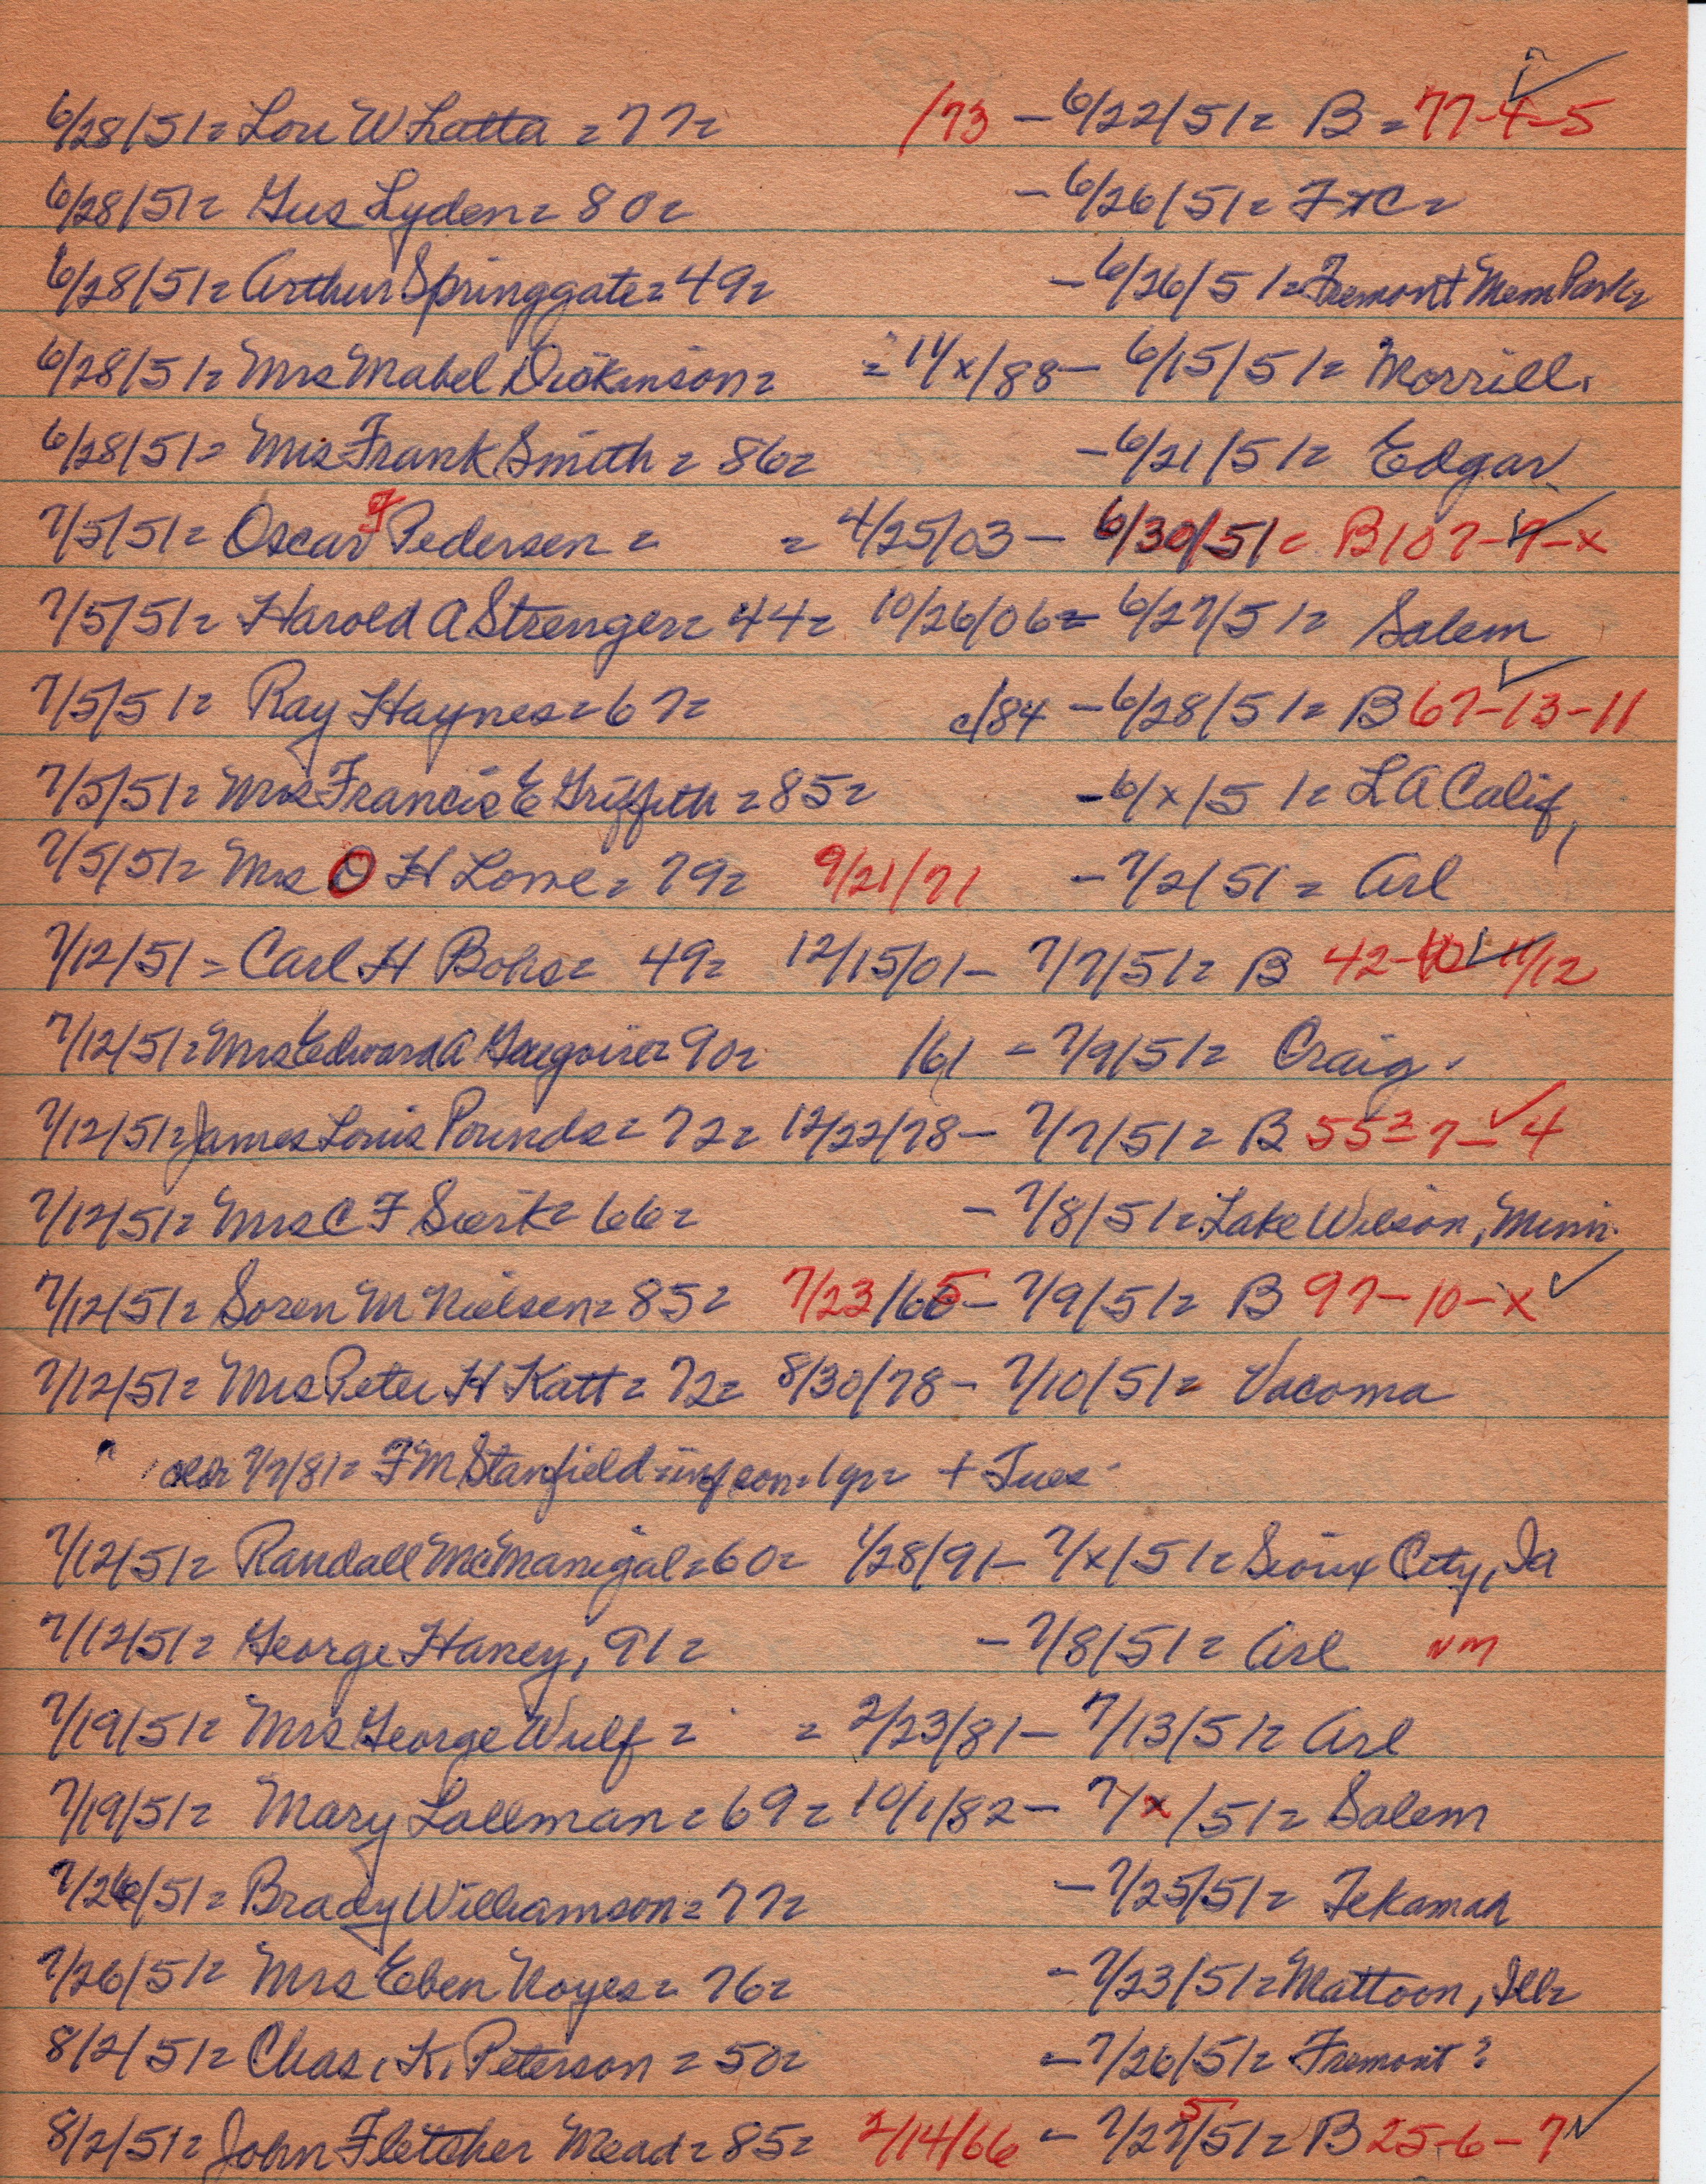 6/28/51= Lou W Latta = 77= /73 - 6/22/51= B = 77-4-5
6/28/51= Gus Lyden= 80= - 6/26/51= F+C=
6/28/51= Arthur Springgate= 49= - 6/26/51= Fremont Mem Park=
6/28/51= Mrs Mabel Dickinson= = 11/x/88 - 6/15/51= Morrill.
6/28/51= Mrs Frank Smith = 86= - 6/21/51= Edgar
7/5/51= Oscar Pedersen = = 4/25/03 - 6/30/51= B 107-7-x
7/5/51= Harold A Strenger= 44= 10/26/06= 6/27/51= Salem
7/5/51= Ray Haynes= 67= c/84 - 6/28/51= B 67-13-11
7/5/51= Mrs Francis E Griffith = 85= - 6/x/51= LA Calif,
7/5/51= Mrs O H Lowe= 79= 9/21/71 - 7/2/51= Arl
7/12/51= Carl H Bohs= 49= 12/15/01- 7/7/51= B 42-10 11/12
7/12/51= Mrs Edward A 90= /61 - 7/9/51= Craig.
7/12/51= James Louis Pounds= 72= 12/22/78- 7/7/51= B 55=7-4
7/12/51= Mrs C F Sierk= 66= - 7/8/51= Lake Wilson, Minn.
7/12/51= Soren M Nielsen= 85= 7/23/65- 7/9/51= B 97-10-x
7/12/51= Mrs Peter H Katt= 72= 8/30/78- 7/10/51= Vacoma
" 7/7/81= F M Stanfield=inf son=1yr= + Tues
7/12/51= Randall McManigal=60= 1/28/91- 7/x/51= Sioux City, Ia
7/12/51= George Haney, 91= - 7/8/51= Arl NM
7/19/51= Mrs George Wulf = = 2/23/81- 7/13/51= Arl
7/19/51= Mary Lallman= 69= 10/1/82- 7/x/51= Salem
7/26/51= Brady Williamson= 77= - 7/25/51= Tekamah
7/26/51= Mrs Eben Noyes= 76= - 7/23/51= Mattoon, Ills
8/2/51= Chas. K. Peterson = 50= - 7/26/51= Fremont?
8/2/51= John Fletcher Mead= 85= 2/14/66 - 7/25/51= B 25-6-7